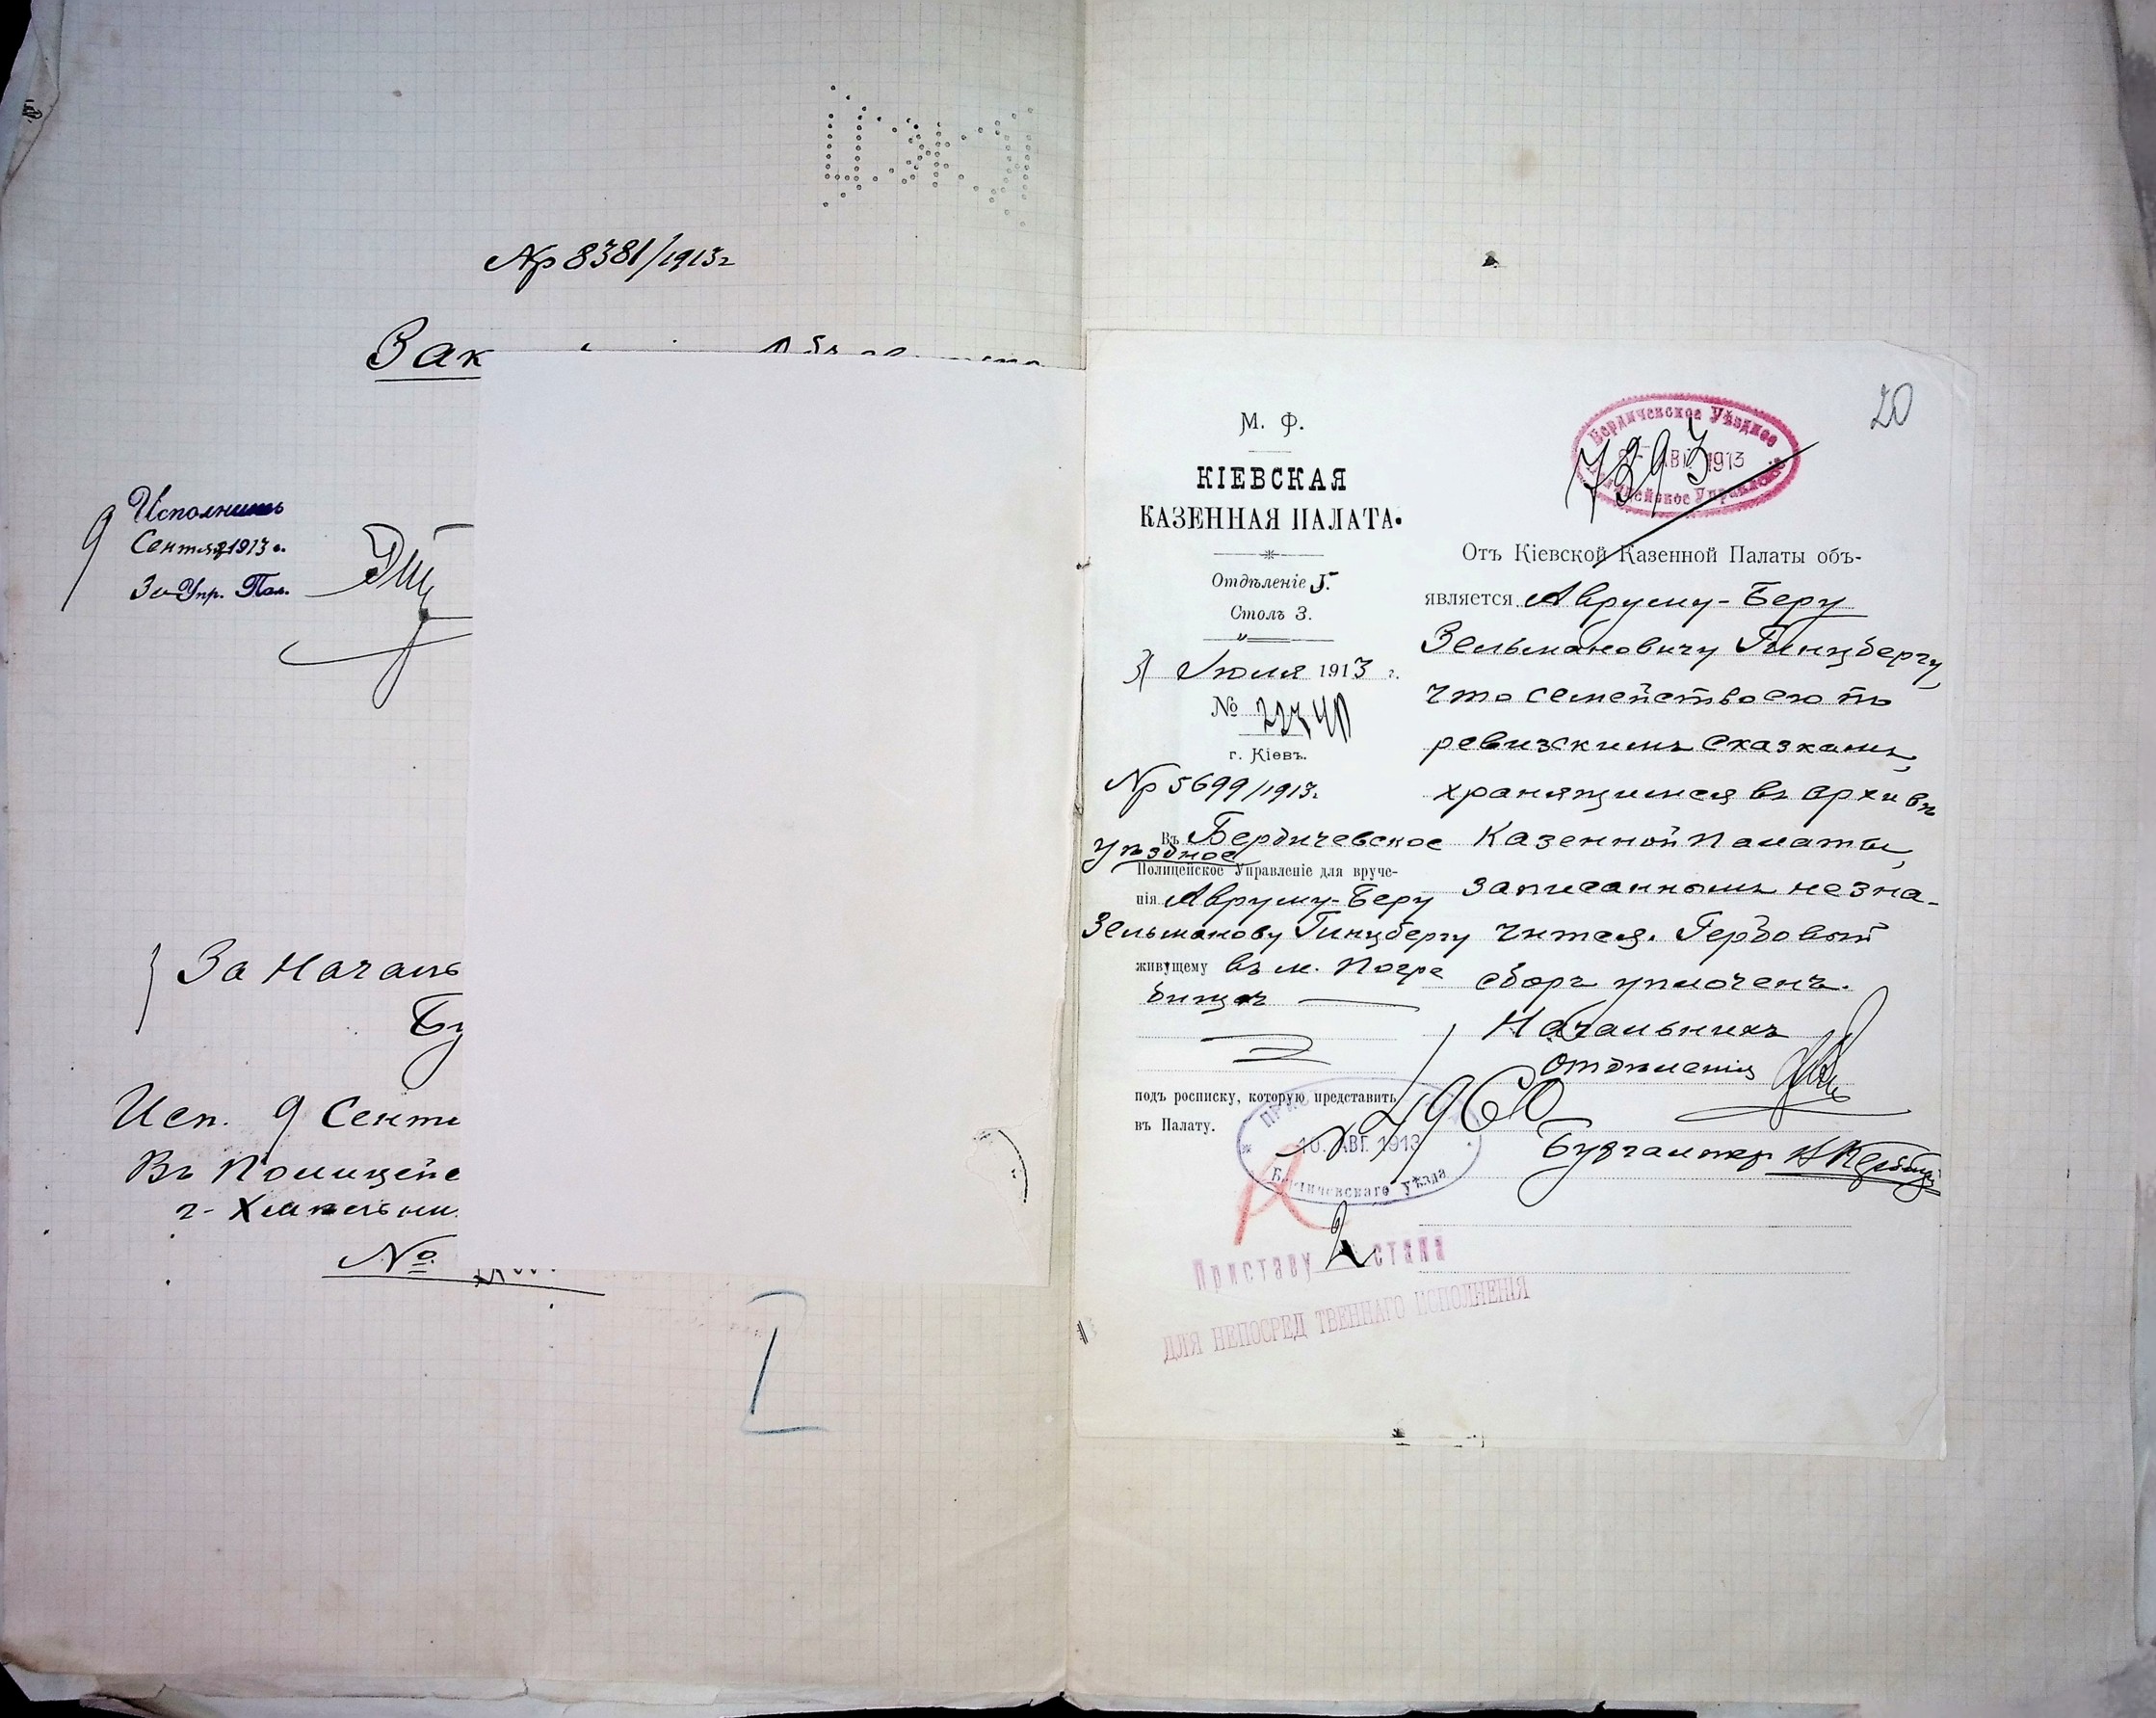 Пр 8381/1913 г
Зак
Исполнить
9 Сентяб 1913 г.
За Упр. Пал.
За Началь
Бу
Исп. 9 Сентя
Въ Полицейс
г. Хмельни
№
20
М. Ф.
КІЕВСКАЯ
КАЗЕННАЯ ПАЛАТА.
Отдѣленіе I.
Столъ 3.
31 Іюля 1913 г.
№ 22740
г. Кіевъ.
Пр 5699/1913 г.
Въ Бердичевское
уѣздное
Полицейское Управленіе для вруче-
нія Авруму-Беру
Зельманову Гинцбергу
живущему въ м. Погре
бищѣ
подъ росписку, которую представить
въ Палату.
Бердичевское Уѣздное
АВГ 1913
Полицейское Управленіе
7393
Отъ Кіевской Казенной Палаты объ-
является Авруму-Беру
Зельмановичу Гинцбергу,
что семейство его по
ревизскимъ сказкамъ,
хранящимся въ архивѣ
Казенной Палаты,
записаннымъ не зна-
чится. Гербовый
сборъ уплоченъ.
Начальникъ
Отдѣленія
Бухгалтеръ
10 АВГ. 1913
Бердичевскаго Уѣзда
Приставу 2 стана
ДЛЯ НЕПОСРЕДСТВЕННАГО ИСПОЛНЕНІЯ